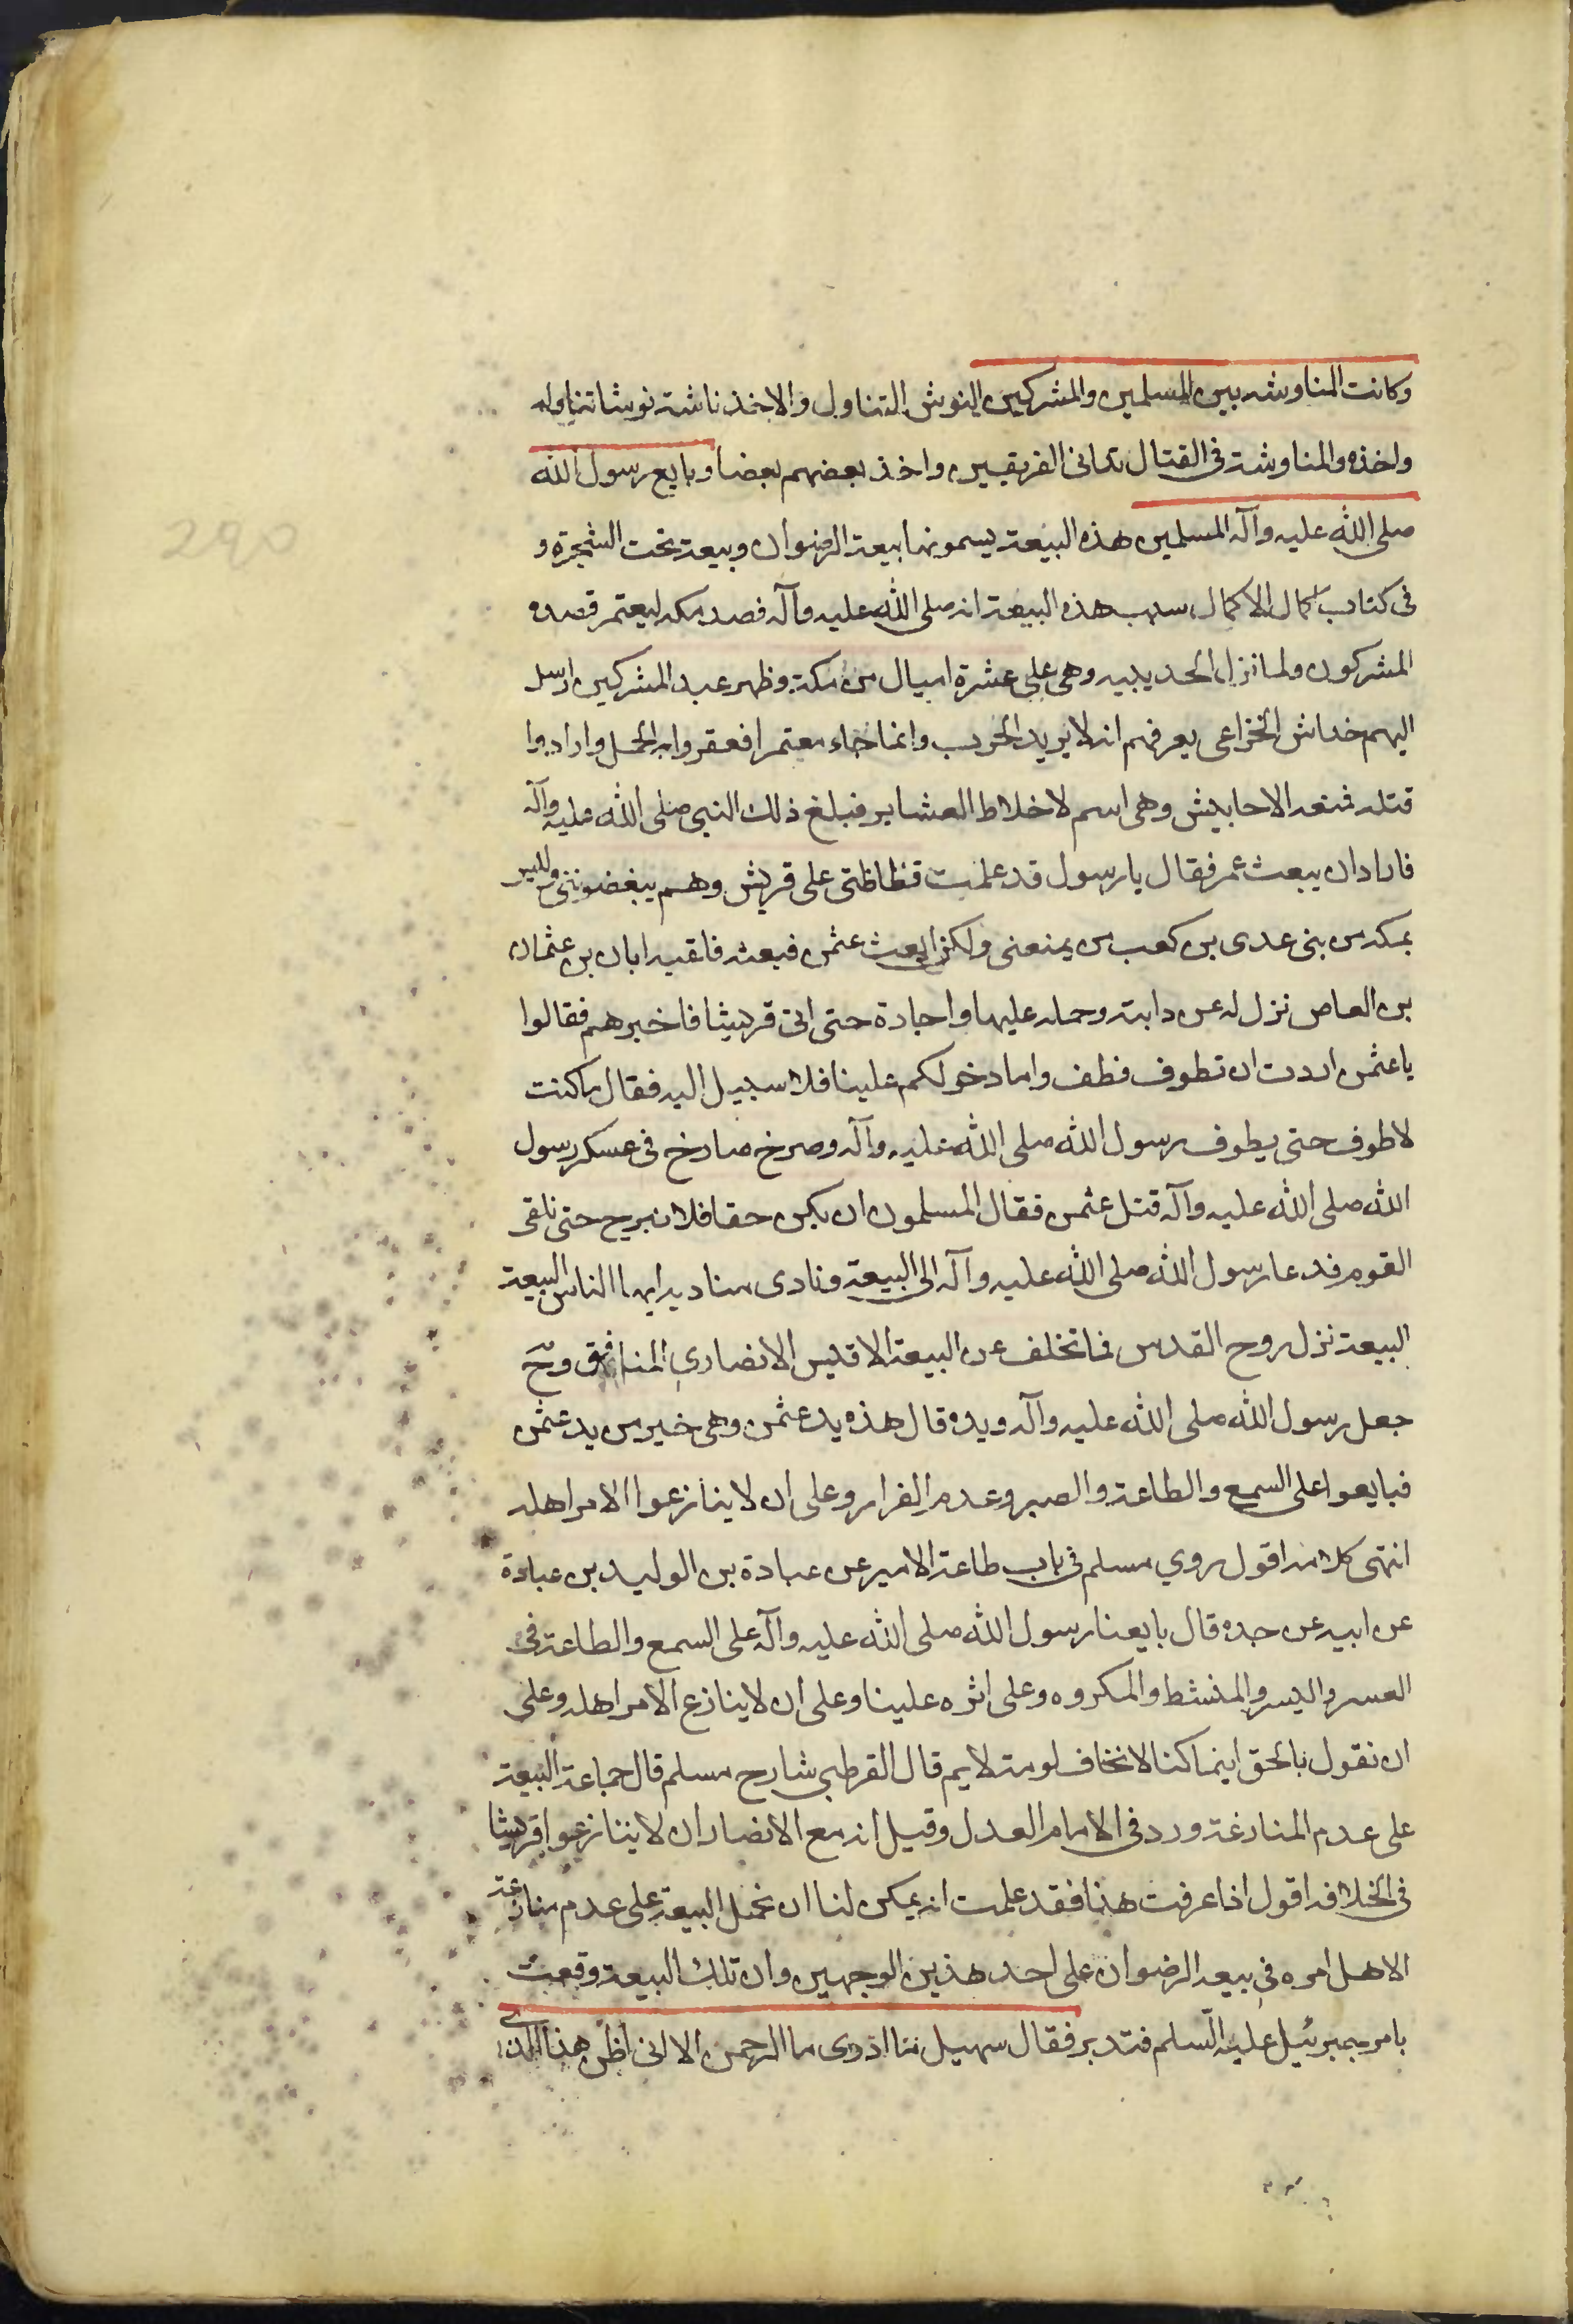 وكانت المناوشه بين المسلمين والمشركين النوش التناول والاخذ ناشته نوشا تناوله
واخذه والمناوشة في القتال تدانى الفريقين واخذ بعضهم بعضا وبايع رسول الله
صلى الله عليه وآله المسلمين هذه البيعة يسمونها بيعة الرضوان وبيعة تحت الشجرة و
فى كتاب اكمال الاكمال سبب هذه البيعة انه صلى الله عليه وآله قصد مكه ليعتمر فصده
المشركون ولما نزل الحديبيه وهى على عشرة اميال من مكة وظهر عبد المشركين ارسل
اليهم خداش الخزاعى يعرفهم انه لا يريد الحرب وانما جاء معتمرا فعقروا به الجمل وارادوا
قتله فمنعه الاحابيش وهى اسم لاخلاط العشاير فبلغ ذلك النبي صلى الله عليه وآله
فاراد ان يبعث عمر فقال يا رسول قد علمت فظاظتى على قريش وهم يبغضوننى وليس
بمكه من بنى عدى بن كعب من يمنعنى ولكن ابعث عثمن فبعثه فلقيه ابان بن عثمان
بن العاص نزل له عن دابته وحمله عليها واجارة حتى اتى قريشا فاخبرهم فقالوا
يا عثمن اردت ان تطوف فطف واما دخولكم علينا فلا سبيل اليه فقال ما كنت
لاطوف حتى يطوف رسول الله صلى الله عليه وآله وصرخ صارخ فى عسكر رسول
الله صلى الله عليه وآله قتل عثمن فقال المسلمون ان يكن حقا فلا نبرح حتى نلقى
القوم فدعا رسول الله صلى الله عليه وآله الى البيعة ونادى مناديه ايها الناس البيعة
البيعة نزل روح القدس فما تخلف عن البيعة الا قيس الانصاري المنافق وح
جعل رسول الله صلى الله عليه وآله ويده قال هذه يد عثمن وهى خير من يد عثمن
فبايعوا على السمع والطاعة والصبر وعدم الفرار وعلى ان لا ينازعوا الامر اهله
انتهى كلامه اقول روي مسلم فى باب طاعة الامير عن عبادة بن الوليد بن عبادة
عن ابيه عن جده قال بايعنا رسول الله صلى الله عليه وآله على السمع والطاعة فى
العسر واليسر والمنشط والمكروه وعلى اثره علينا وعلى ان لا ينازع الامر اهله وعلى
ان نقول بالحق اينما كنا لا نخاف لومة لايم قال القرطبى شارح مسلم قال جماعة البيعة
على عدم المنازعة ورد فى الامام العدل وقيل انه مع الانصار ان لا يتنازعوا قريشا
فى الخلافه اقول اذا عرفت هذا فقد علمت انه يمكن لنا ان نحمل البيعة على عدم منازعة
الاهل امره فى بيعة الرضوان على احد هذين الوجهين وان تلك البيعة وقعت
بامر جبرئيل عليه السلم فتدبر فقال سهيل ما ادرى ما الرحمن الا انى اظن هذا الذى
290